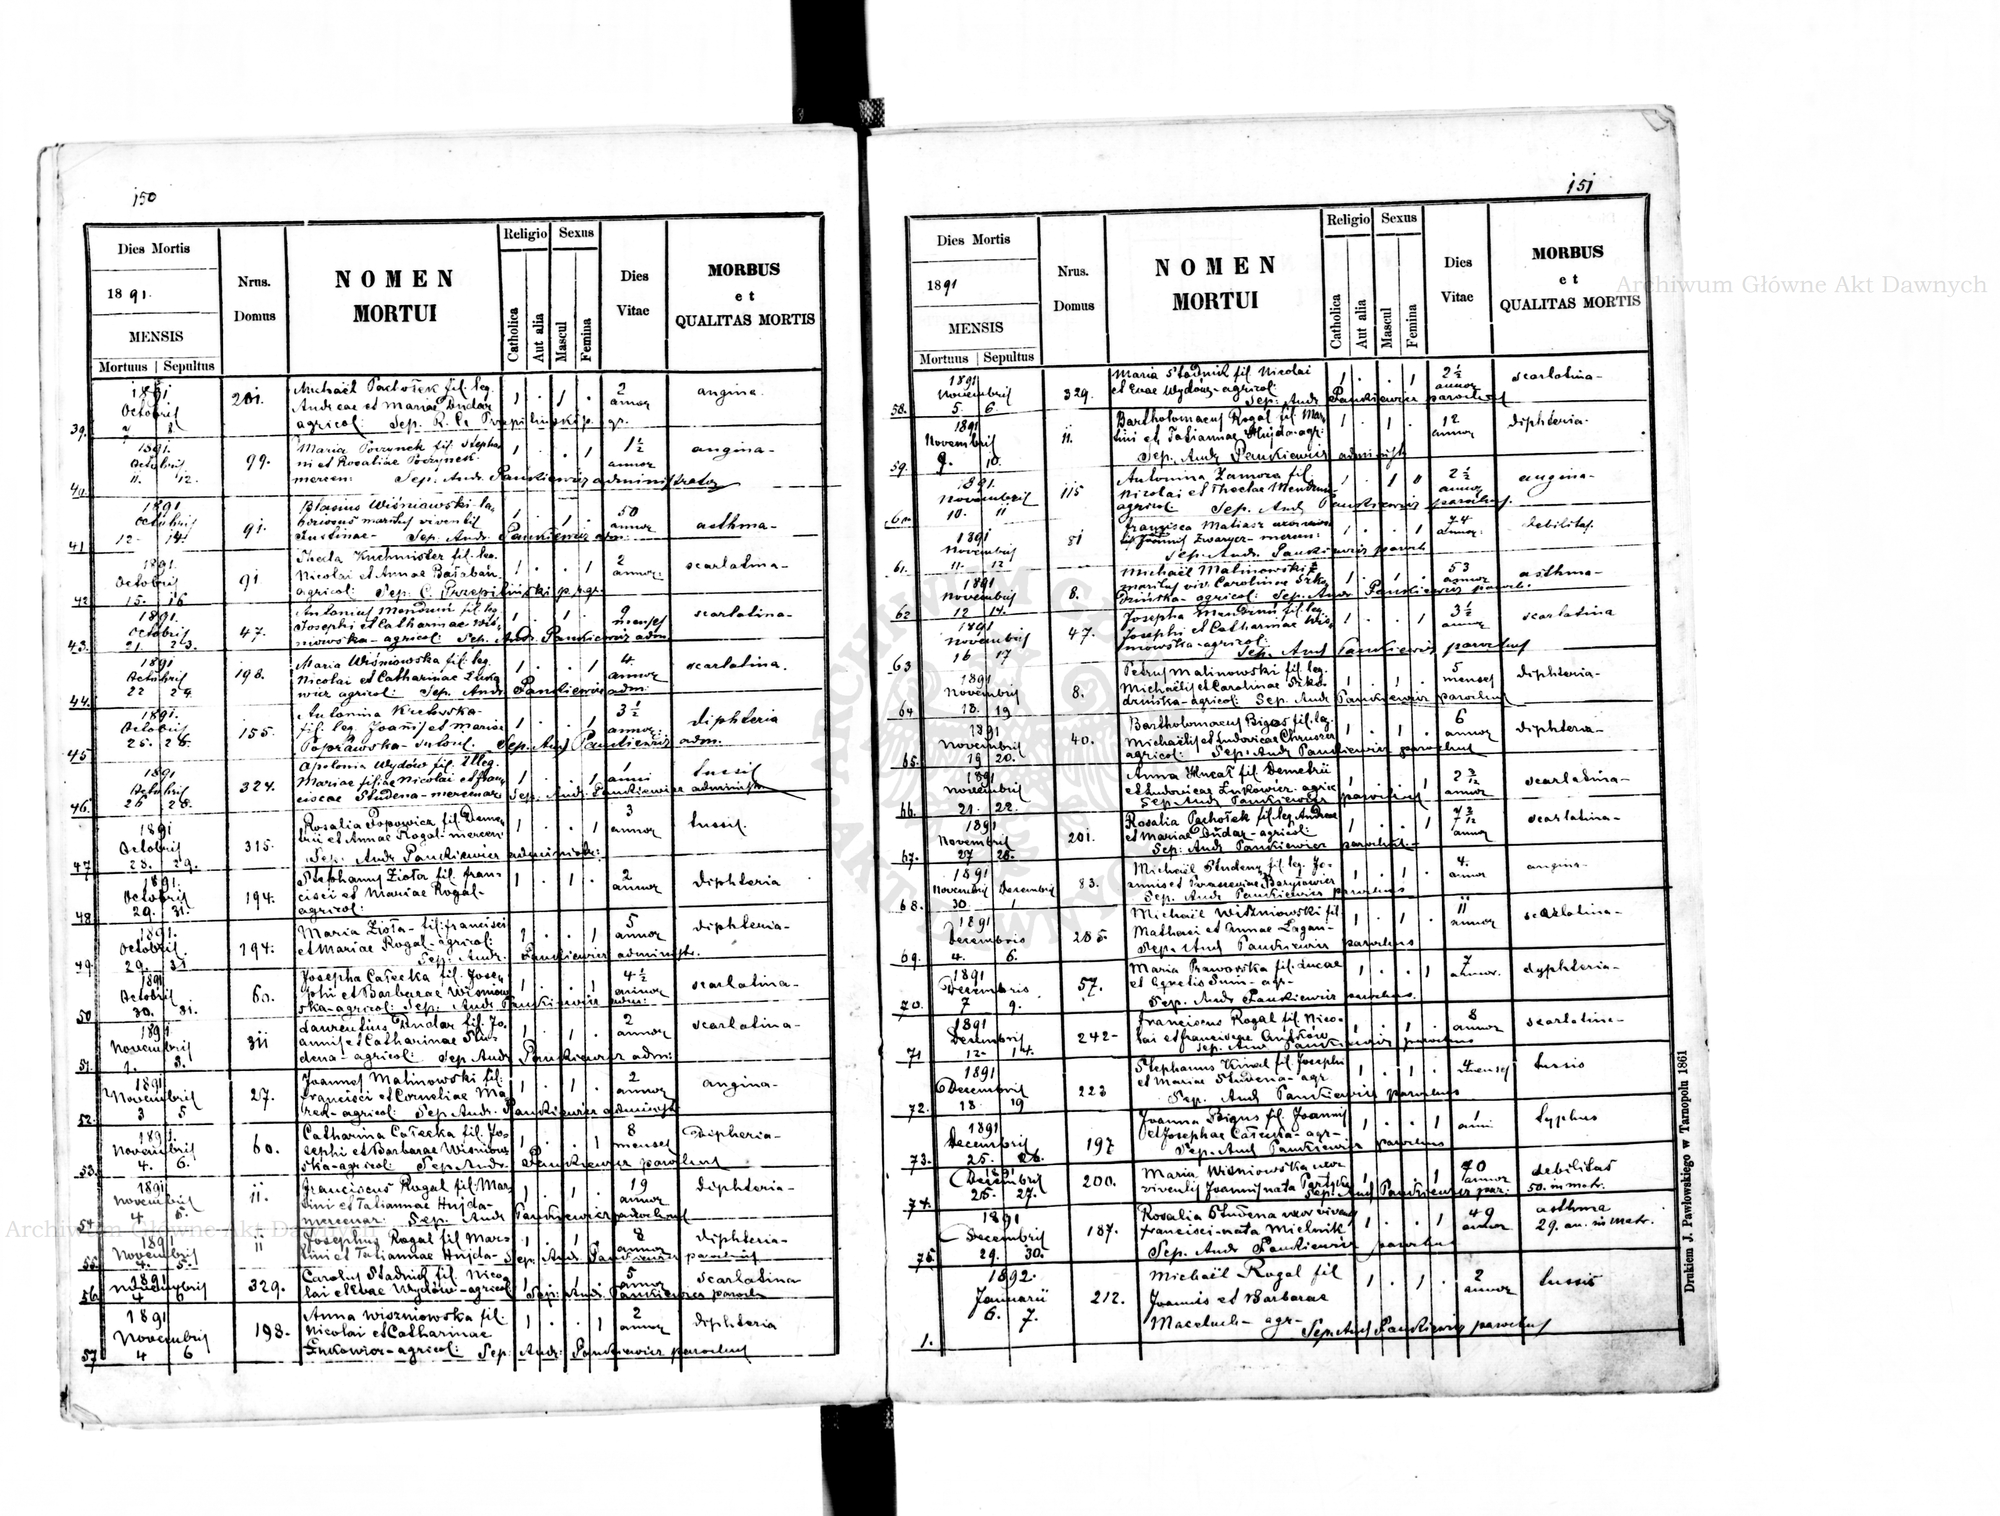 150
Dies Mortis
1891.
MENSIS
Mortuus | Sepultus
Nrus.
Domus
NOMEN
MORTUI
Religio
Catholica
Aut alia
Sexus
Mascul
Femina
Dies
Vitae
MORBUS
et
QUALITAS MORTIS
39.
1891
Octobris
201.
Michaël Pachołek fil. leg.
Andreae et Mariae Dudar
agricol: Sep. R. C. Przepiliński p. gr.
1 . 1 .
2
annor
angina.
40.
1891.
Octobris
11. 12.
99.
Maria Poczynek fil. Stepha
ni et Rosaliae Poczynek
mercen: Sep. Andr. Pankiewicz administrator
1 . . 1
1½
annor
angina-
41
1891
Octobris
12- 14.
91.
Blasius Wiśniowski la-
boriosus maritus viventis
Justinae- Sep: Andr. Pankiewicz adm:
1 . 1 .
50
annor
asthma-
42
1891.
Octobris
15. 16
91
Thecla Kuchmister fil. leg.
Nicolai et Annae Bałaban
agricol: Sep: C. Przepiliński p. r. gr.
1 . . 1
2
annor:
scarlatina-
43.
1891.
Octobris
21. 23.
47.
Antonius Mendruń fil. leg.
Josephi et Catharinae Wiś-
niowska- agricol: Sep. Andr. Pankiewicz adm
1 . 1 .
9
menses
scarlatina-
44.
1891
Octobris
22 24
198.
Maria Wiśniowska fil. leg.
Nicolai et Catharinae Łuko
wicz agricol: Sep. Andr. Pankiewicz adm:
1 . . 1
4.
annor
scarlatina.
45
1891.
Octobris
25. 26.
155.
Antonina
fil. leg. Joannis et Mariae
Poprawska- Sep. And Pankiewicz adm.
1 . . 1
3½
annor:
diphteria
46.
1891
Octobris
26 28.
324.
Apolonia Wydów fil. Illeg.
Mariae filiae Nicolai et Fran
ciscae Studena- mercenar Sep. Andr. Pankiewicz administr
1 . . 1
1
anni
tussis
47
1891
Octobris
28. 29.
315.
Rosalia Popowicz fil. Deme-
trii et Annae Rogal- mercen:
Sep. Andr Pankiewicz administr:
1 . . 1
3
annor
tussis.
48
1891.
Octobris
29. 31.
194.
Stephanus Zioła fil. Fran-
cisci et Mariae Rogal-
agricol:
1 . 1 .
2
annor
diphteria
49.
1891.
Octobris
29. 31
194:
Maria Zioła- fil: Francisci
et Mariae Rogal- agricol:
Sep: Andr. Pankiewicz administr.
1 . . 1
5
annor
diphteria-
50
1891
Octobris
30. 31.
60.
Josepha Całecka fil. Jose-
phi et Barbarae Wiśniow
ska- agricol: Sep. Andr Pankiewicz adm:
1 . . 1
4½
annor
scarlatina-
51.
1891
Novembris
1. 3.
311
Laurentius Dudar fil. Jo-
annis et Catharinae Stu-
dena- agricol: Sep Andr Pankiewicz adm:
1 . 1 .
2
annor
scarlatina-
52.
1891
Novembris
3 5
27.
Joannes Malinowski fil.
Francisci et Corneliae Ma
rek- agricol: Sep. Andr. Pankiewicz administr
1 . 1 .
2
annor
angina-
53.
1891.
Novembris
4. 6.
60.
Catharina Całecka fil. Jo-
sephi et Barbarae Wiśniow
ska- agricol: Sep. Andr. Pankiewicz parochus
1 . . 1
8
menses
Dipheria-
54.
1891
Novembris
4 6.
11.
Franciscus Rogal fil. Mar-
tini et Tatiannae Hujda-
mercenar: Sep. Andr Pankiewicz parochus
1 . 1 .
19
annor
diphteria-
55.
1891
Novembris
4. 5.
11
Josephus Rogal fil Mar-
tini et Tatiannae Hujda- Sep. Andr. Pankiewicz parochus
1 . 1 .
8
annor
diphteria-
56.
1891
Novembris
4 6
329.
Carolus Stadnik fil. Nico-
lai et Evae Wydów- agricol Sep: Andr. Pankiewicz paroch
5
annor
scarlatina
57
1891
Novembris
4 6
198.
Anna Wiszniowska fil.
Nicolai et Catharinae
Łukowicz- agricol: Sep: Andr: Pankiewicz parochus
1 . . 1
2
annor
diphteria
151
Dies Mortis
1891
MENSIS
Mortuus | Sepultus
Nrus.
Domus
NOMEN
MORTUI
Religio
Catholica
Aut alia
Sexus
Mascul
Femina
Dies
Vitae
MORBUS
et
QUALITAS MORTIS
58.
1891
Novembris
5. 6.
329.
Maria Stadnik fil Nicolai
et Evae Wydów- agricol:
Sep. Andr Pankiewicz parochus
1 . . 1
2½
annor
scarlatina-
59.
1891
Novembris
9. 10.
11.
Bartholomaeus Rogal fil. Mar
tini et Tatiannae Hujda- agr:
Sep. Andr Pankiewicz administr
1 . 1 .
12
annor
diphteria-
60
1891.
Novembris
10. 11
115
Antonina Zamora fil
Nicolai et Theclae Mendruń
agricol Sep. And Pankiewicz parochus.
2½
annor
angina-
61.
1891
Novembris
11. 12
81
Francisca Matiasz
Joannis Zwarycz- mercen:
Sep. Andr. Pankiewicz paroch
1 . . 1
74
annor:
debilitas.
62
1891
Novembris
12 14.
8.
Michaël Malinowski
maritus viv. Carolinae Szko
druńska- agricol: Sep. Andr Pankiewicz paroch.
1 . 1 .
53
annor
asthma-
63
1891
Novembris
16 17
47.
Josepha Mendruń fil. leg.
Josephi et Catharinae Wiś-
niowska- agricol:
Sep. And Pankiewicz parochus
1 . . 1
3½
annor
scarlatina
64
1891
Novembris
18. 19
8.
Petrus Malinowski fil. leg.
Michaëlis et Carolinae Szko-
druńska- agricol: Sep. Andr Pankiewicz parochus
1 . 1 .
5
menses
diphteria-
65.
1891
Novembris
19 20.
40.
Bartholomaeus Bigus fil. leg.
Michaëlis et Ludovicae Chruszcz
agricol: Sep. Andr Pankiewicz parochus
1 . 1 .
6
annor
diphteria-
66.
1891
Novembris
21. 22.
Anna Hucał fil. Demetrii
et Ludovicae Łukowicz- agric
Sep. Andr Pankiewicz parochus
1 . . 1
2 3/12
annor
scarlatina-
67.
1891
Novembris
27 28.
201.
Rosalia Pachołek fil. leg. Andreae
et Mariae Dudar- agricol:
Sep: Andr Pankiewicz parochus.-
1 . . 1
7 3/12
annor
scarlatina-
68.
1891
Novembris Decembris
30. 1
83.
Michaël Studeny fil. leg. Jo-
annis et Parasceviae Borysiewicz
Sep. Andr Pankiewicz parochus
1 . 1 .
4.
annor
angina-
69.
1891
Decembris
4. 6.
285.
Michaël Wiszniowski fil.
Mathaei et Annae Zagan-
Sep. And Pankiewicz parochus
1 . 1 .
11
annor
scarlatina-
70.
1891
Decembris
7 9.
57.
Maria Prawowska fil. Lucae
et Agnetis Sum- agr-
Sep. Andr Pankiewicz parochus.
1 . . 1
7
annor.
dyphteria-
71
1891
Decembris
12- 14.
242-
Franciscus Rogal fil. Nico-
lai et Franciscae Antków
Sep. And Pankiewicz parochus
1 . 1 .
8
annor
scarlatina-
72.
1891
Decembris
18. 19
223
Stephanus Kinal fil. Josephi
et Mariae Studena- agr
Sep. And Pankiewicz parochus
1 . 1 .
4 menses
tussis
73.
1891
Decembris
25. 26.
197
Joanna Bigus fil. Joannis
et Josephae Całecka- agr-
Sep. And Pankiewicz parochus
1 . . 1
1
anni
typhus
74.
1891
Decembris
25. 27.
200.
Maria Wiśniowska uxor
viventis Joannis nata Partyka
Sep. And Pankiewicz par:
1 . . 1
70
annor
debilitas
50. in matr.
75.
1891
Decembris
29. 30.
187.
Rosalia Studena uxor viven
Francisci- nata Mielnik
Sep. Andr Pankiewicz parochus
1 . . 1
49
annor
asthma
29. an. in matr.
1.
1892.
Januarii
6. 7.
212.
Michaël Rogal fil
Joannis et Barbarae
Maceluch- agr-
Sep. And Pankiewicz parochus
1 . 1 .
2
annor
tussis
Drukiem J. Pawłowskiego w Tarnopolu 1861
Archiwum Główne Akt Dawnych
Archiwum Główne Akt Dawnych